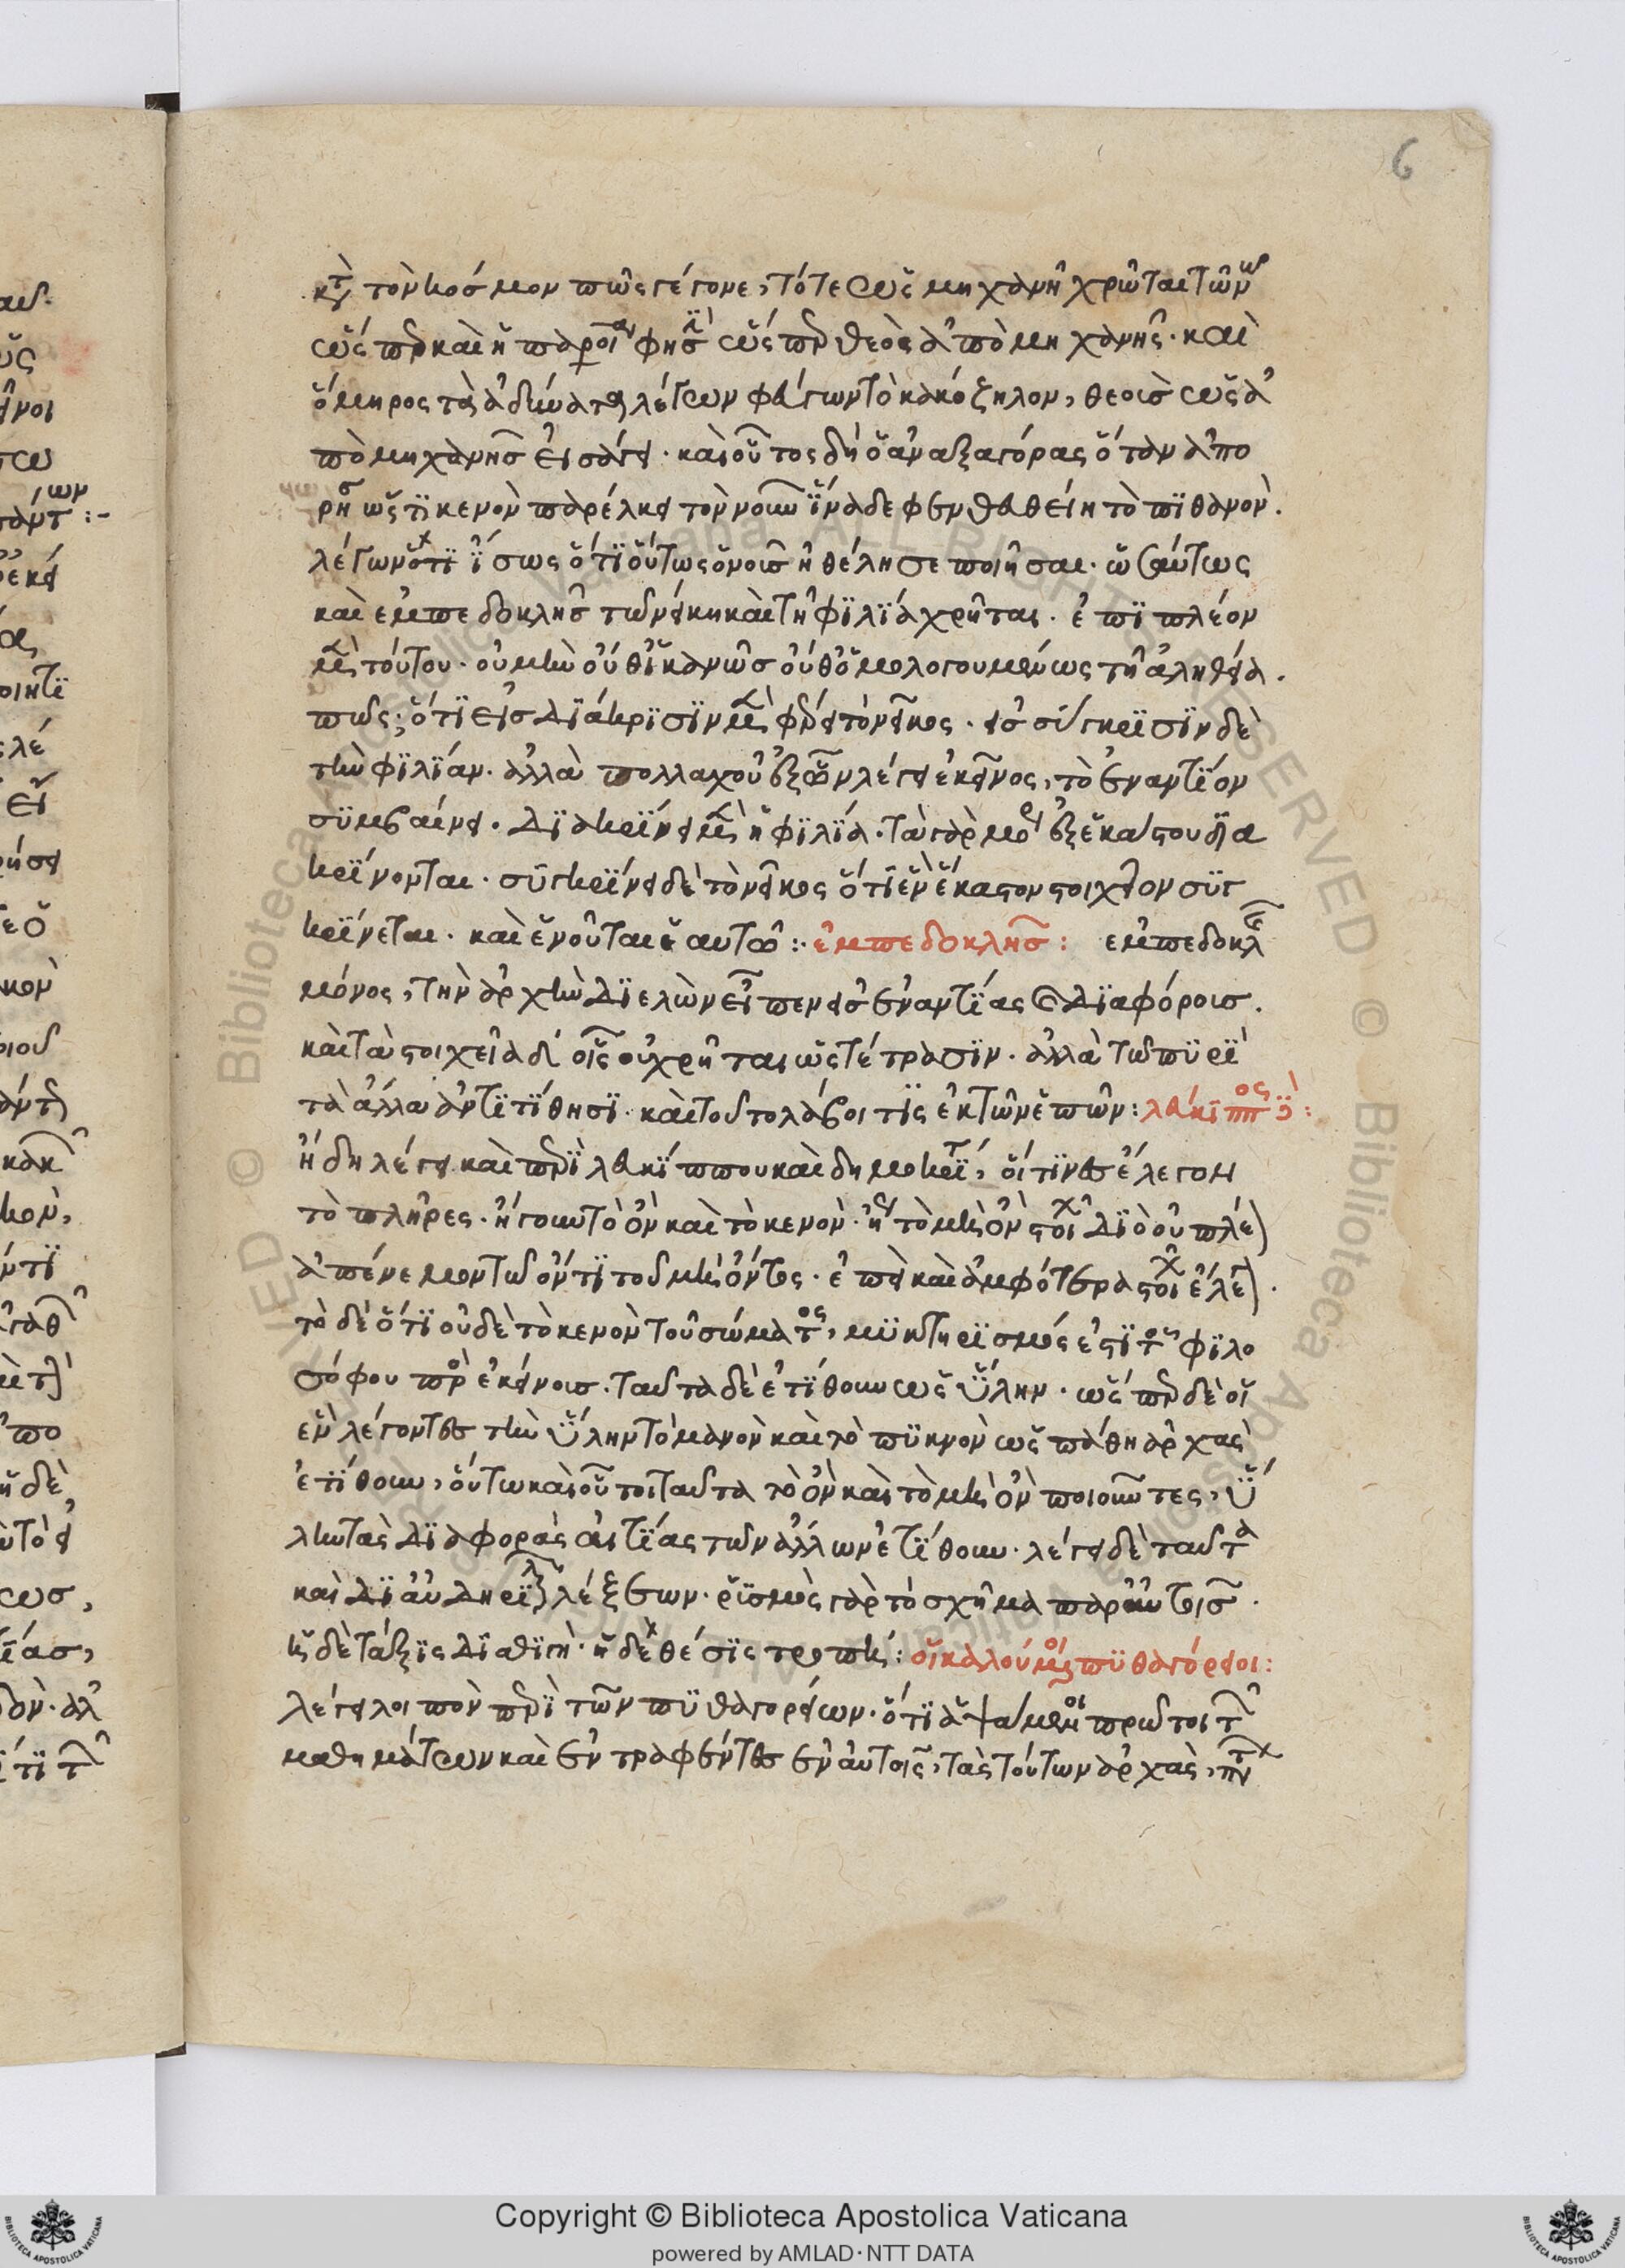 6
κτ τὸν κόσμον πῶς γέγονε, τότε ὡς μηχανῆ χρῶται τῶ νῶ
ὡς περ καὶ ἡ παροιμία φησὶ ὥς περ θεὸς ἀπὸ μηχανῆς. καὶ
ὅμηρος τὰ ἀδύνατα λέγων φεύγων τὸ κακόζηλον, θεοὺσ ὡς ἀ
πὸ μηχανῆσ εἰσάγει. καὶ οὗτος δὴ ὁ ἀναξαγόρας ὅταν ἀπο
ρῆ ὥς τι κενὸν παρέλκει τὸν νοῦν ἵνα δε φευχθείη τὸ πιθανὸν.
λέγων ὅτι ἴσως ὅτι οὕτως ὁ νοῦσ ἠθέλησε ποιῆσαι. ὡσαύτως
καὶ εμπεδοκλῆσ τῶ νείκη καὶ τῆ φιλία χρῆται. ἐπι πλέον
μὲν τούτου. οὐ μὴν οὔθ ἱκανῶσ οὔθ ὁμολογουμένως τῆ ἀληθεία.
πῶς; ὅτι εἰσ διάκρισιν μὲν φέρει τὸ νεῖκος. εἰσ σύγκρισιν δὲ
τὴν φιλίαν. ἀλλὰ πολλαχοῦ ἐξ ὧν λέγει ἐκεῖνος, τὸ ἐναντίον
συμβαίνει. διακρίνει μὲν ἡ φιλία. τὰ γὰρ μέρη ἐξ ἑκάστου δια
κρίνονται. συγκρίνει δὲ τὸ νεῖκος ὅτι ἓν ἕκαστον στοιχεῖον συγ
κρίνεται. καὶ ἑνοῦται ἑαυτῶ: ἐμπεδοκλῆσ: εμπεδοκλῆς
μόνος, τὴν ἀρχὴν διελὼν εἶπεν εἰσ ἐναντίας καὶ διαφόροισ.
καὶ τὰ στοιχεῖα δὲ οἷς οὐ χρῆται ὡς τέτρασιν. ἀλλὰ τῶ πυρὶ
τὰ ἄλλα ἀντιτίθησι. καὶ τοῦτο λάβοι τις ἐκ τῶν ἐπῶν: λεύκιππος:
ἤδη λέγει καὶ περὶ λευκίππου καὶ δημοκρίτου, οἵτινεσ ἔλεγον
τὸ πλῆρες. ἤγουν τὸ ὂν καὶ τὸ κενὸν. ἤγουν τὸ μὴ ὂν στοιχεῖα διὸ οὐ πλέον
ἀπένεμον τῶ ὄντι τοῦ μὴ ὄντος. ἐπεὶ καὶ ἀμφότερα στοιχεῖα ἔλεγον.
τὸ δὲ ὅτι οὐδὲ τὸ κενὸν τοῦ σώματος, μυκτηρισμός ἐστι τοῦ φιλο
σόφου πρὸς ἐκείνουσ. ταῦτα δὲ ἐτίθουν ὡς ὕλην. ὥς περ δὲ οἱ
ἓν λέγοντεσ τὴν ὕλην τὸ μανὸν καὶ τὸ πυκνὸν ὡς πάθη ἀρχὰς
ἐτίθουν, οὕτω καὶ οὗτοι ταῦτα τὸ ὂν καὶ τὸ μὴ ὂν ποιοῦντες, ὕ
λην τὰς διαφορὰς αἰτίας τῶν ἄλλων ἐτίθουν. λέγει δὲ ταῦτα
καὶ δι ἀβδηριτικῶν λέξεων. ῥισμὸς γὰρ τὸ σχῆμα παρ αὐτοῖσ.
ἡ δὲ τάξις διαθιγὴ. ἡ δὲ θέσις τροπὴ: οἱ καλούμενοι πυθαγόρειοι:
λέγει λοιπὸν περὶ τῶν πυθαγορείων. ὅτι ἁψάμενοι πρῶτοι τῶν
μαθημάτων καὶ ἐντραφέντεσ ἐν αὐτοῖς, τὰς τούτων ἀρχὰς, πάντων